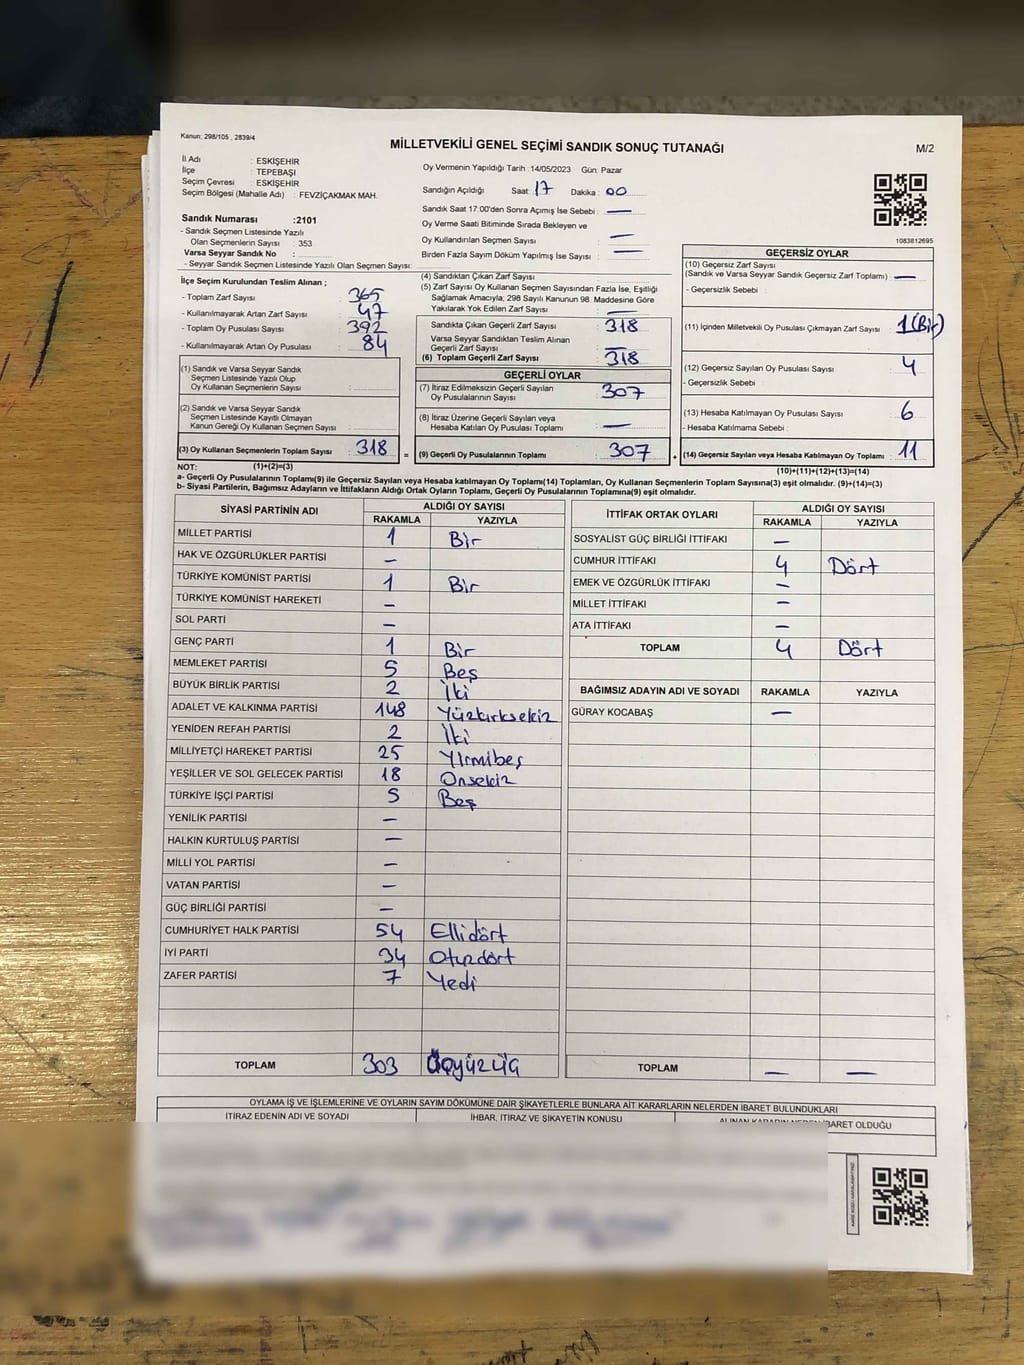 Kanun; 298/105 , 2839/4
MİLLETVEKİLİ GENEL SEÇİMİ SANDIK SONUÇ TUTANAĞI
M/2
İl Adı : ESKİŞEHİR
İlçe : TEPEBAŞI
Seçim Çevresi : ESKİŞEHİR
Seçim Bölgesi (Mahalle Adı) : FEVZİÇAKMAK MAH.
Oy Vermenin Yapıldığı Tarih : 14/05/2023 Gün: Pazar
Sandığın Açıldığı Saat: 17 Dakika : 00
Sandık Saat 17:00'den Sonra Açımış İse Sebebi : —
Oy Verme Saati Bitiminde Sırada Bekleyen ve
Oy Kullandırılan Seçmen Sayısı : —
Birden Fazla Sayım Döküm Yapılmış İse Sayısı : —
Sandık Numarası :2101
- Sandık Seçmen Listesinde Yazılı
Olan Seçmenlerin Sayısı : 353
Varsa Seyyar Sandık No :
- Seyyar Sandık Seçmen Listesinde Yazılı Olan Seçmen Sayısı:
1083812695
İlçe Seçim Kurulundan Teslim Alınan ;
- Toplam Zarf Sayısı : 365
- Kullanılmayarak Artan Zarf Sayısı : 47
- Toplam Oy Pusulası Sayısı : 392
- Kullanılmayarak Artan Oy Pusulası : 84
(1) Sandık ve Varsa Seyyar Sandık
Seçmen Listesinde Yazılı Olup
Oy Kullanan Seçmenlerin Sayısı :
(2) Sandık ve Varsa Seyyar Sandık
Seçmen Listesinde Kayıtlı Olmayan
Kanun Gereği Oy Kullanan Seçmen Sayısı :
(3) Oy Kullanan Seçmenlerin Toplam Sayısı : 318
(1)+(2)=(3)
(4) Sandıktan Çıkan Zarf Sayısı :
(5) Zarf Sayısı Oy Kullanan Seçmen Sayısından Fazla İse, Eşitliği
Sağlamak Amacıyla; 298 Sayılı Kanunun 98. Maddesine Göre
Yakılarak Yok Edilen Zarf Sayısı : —
Sandıkta Çıkan Geçerli Zarf Sayısı : 318
Varsa Seyyar Sandıktan Teslim Alınan
Geçerli Zarf Sayısı : —
(6) Toplam Geçerli Zarf Sayısı : 318
GEÇERLİ OYLAR
(7) İtiraz Edilmeksizin Geçerli Sayılan
Oy Pusulalarının Sayısı : 307
(8) İtiraz Üzerine Geçerli Sayılan veya
Hesaba Katılan Oy Pusulası Toplamı : —
= (9) Geçerli Oy Pusulalarının Toplamı : 307 +
GEÇERSİZ OYLAR
(10) Geçersiz Zarf Sayısı
(Sandık ve Varsa Seyyar Sandık Geçersiz Zarf Toplamı) : —
- Geçersizlik Sebebi :
(11) İçinden Milletvekili Oy Pusulası Çikmayan Zarf Sayısı : 1(Bir)
(12) Geçersiz Sayılan Oy Pusulası Sayısı : 4
- Geçersizlik Sebebi :
(13) Hesaba Katılmayan Oy Pusulası Sayısı : 6
- Hesaba Katılmama Sebebi :
(14) Geçersiz Sayılan veya Hesaba Katılmayan Oy Toplamı : 11
(10)+(11)+(12)+(13)=(14)
NOT:
a- Geçerli Oy Pusulaları Toplamı(9) ile Geçersiz Sayılan veya Hesaba katılmayan Oy Toplamı(14) Toplamları, Oy Kullanan Seçmenlerin Toplam Sayısına(3) eşit olmalıdır. (9)+(14)=(3)
b- Siyasi Partilerin, Bağımsız Adayların ve İttifakların Aldığı Ortak Oyların Toplamı, Geçerli Oy Pusulalarının Toplamına(9) eşit olmalıdır.
SİYASİ PARTİNİN ADI ALDIĞI OY SAYISI
RAKAMLA YAZIYLA
MİLLET PARTİSİ 1 Bir
HAK VE ÖZGÜRLÜKLER PARTİSİ —
TÜRKİYE KOMÜNİST PARTİSİ 1 Bir
TÜRKİYE KOMÜNİST HAREKETİ —
SOL PARTİ —
GENÇ PARTİ 1 Bir
MEMLEKET PARTİSİ 5 Beş
BÜYÜK BİRLİK PARTİSİ 2 İki
ADALET VE KALKINMA PARTİSİ 148 Yüzkırksekiz
YENİDEN REFAH PARTİSİ 2 İki
MİLLİYETÇİ HAREKET PARTİSİ 25 Yirmibeş
YEŞİLLER VE SOL GELECEK PARTİSİ 18 Onsekiz
TÜRKİYE İŞÇİ PARTİSİ 5 Beş
YENİLİK PARTİSİ —
HALKIN KURTULUŞ PARTİSİ —
MİLLİ YOL PARTİSİ —
VATAN PARTİSİ —
GÜÇ BİRLİĞİ PARTİSİ —
CUMHURİYET HALK PARTİSİ 54 Ellidört
İYİ PARTİ 34 Otuzdört
ZAFER PARTİSİ 7 Yedi
TOPLAM 303 Üçyüzüç
İTTİFAK ORTAK OYLARI ALDIĞI OY SAYISI
RAKAMLA YAZIYLA
SOSYALİST GÜÇ BİRLİĞİ İTTİFAKI —
CUMHUR İTTİFAKI 4 Dört
EMEK VE ÖZGÜRLÜK İTTİFAKI —
MİLLET İTTİFAKI —
ATA İTTİFAKI —
TOPLAM 4 Dört
BAĞIMSIZ ADAYIN ADI VE SOYADI RAKAMLA YAZIYLA
GÜRAY KOCABAŞ —
TOPLAM — —
OYLAMA İŞ VE İŞLEMLERİNE VE OYLARIN SAYIM DÖKÜMÜNE DAİR ŞİKAYETLERLE BUNLARA AİT KARARLARIN NELERDEN İBARET BULUNDUKLARI
İTİRAZ EDENİN ADI VE SOYADI İHBAR, İTİRAZ VE ŞİKAYETİN KONUSU ALINAN KARARIN NEDEN İBARET OLDUĞU